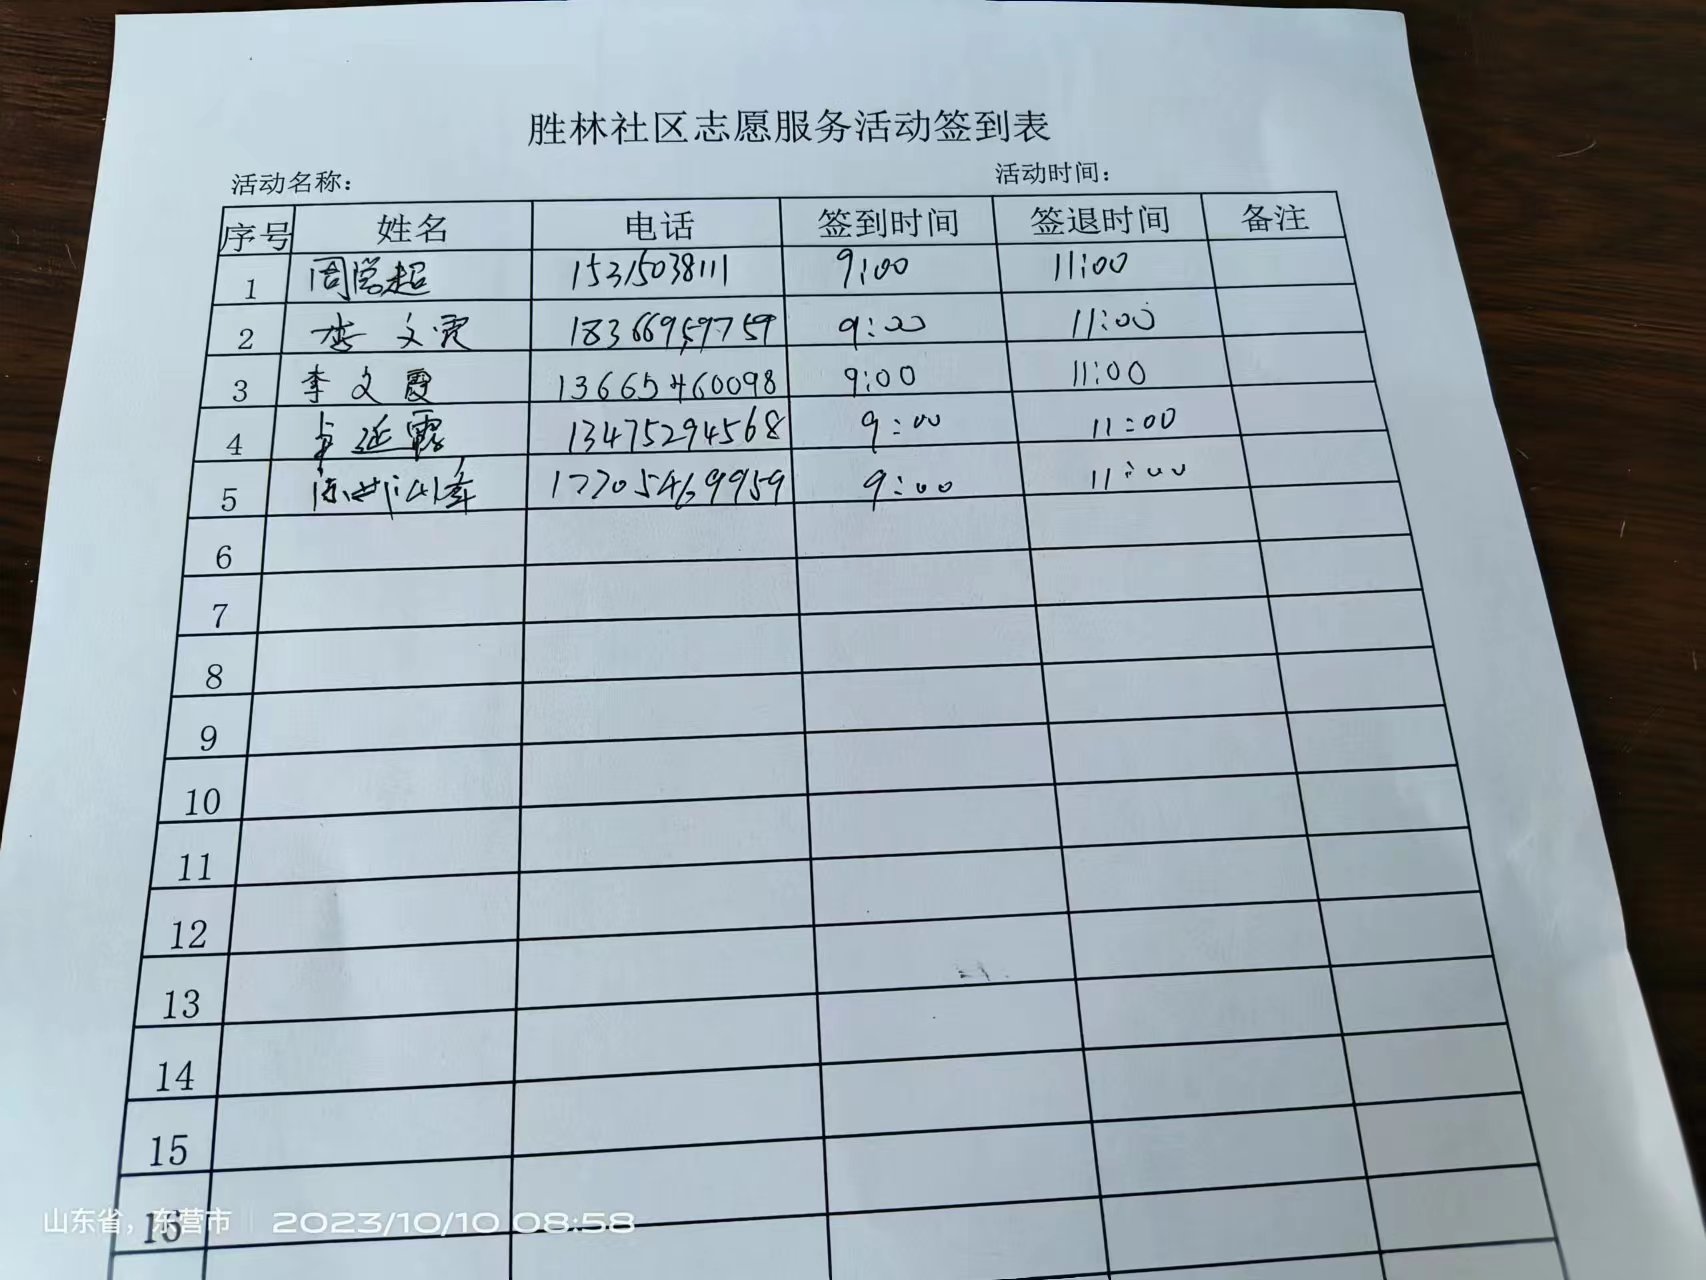 胜林社区志愿服务活动签到表
活动名称： 活动时间：
序号 姓名 电话 签到时间 签退时间 备注
1 周学超 15315038111 9:00 11:00
2 李文霞 18366959759 9:00 11:00
3 李文霞 13665460098 9:00 11:00
4 延霞 13475294568 9:00 11:00
5 17705469959 9:00 11:00
6
7
8
9
10
11
12
13
14
15
16
山东省，东营市 2023/10/10 08:58